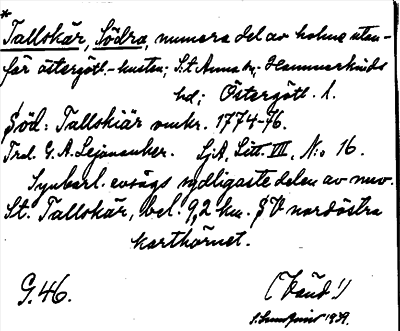 *
Tallskär, Södra, numera del av holme utan-
för östergötl.-kusten; S:t Anna sn; Hammarkinds
hd; Östergötl. l.
Söd: Tallskiär omkr. 1774-76.
Trol. G. A. Lejonanker. SjA, Litt. III, N:o 16.
Synbarl. avsågs sydligaste delen av nuv.
St. Tallskär, bel. 9,2 km. SV nordöstra
karthörnet.
G. 46.
1939.